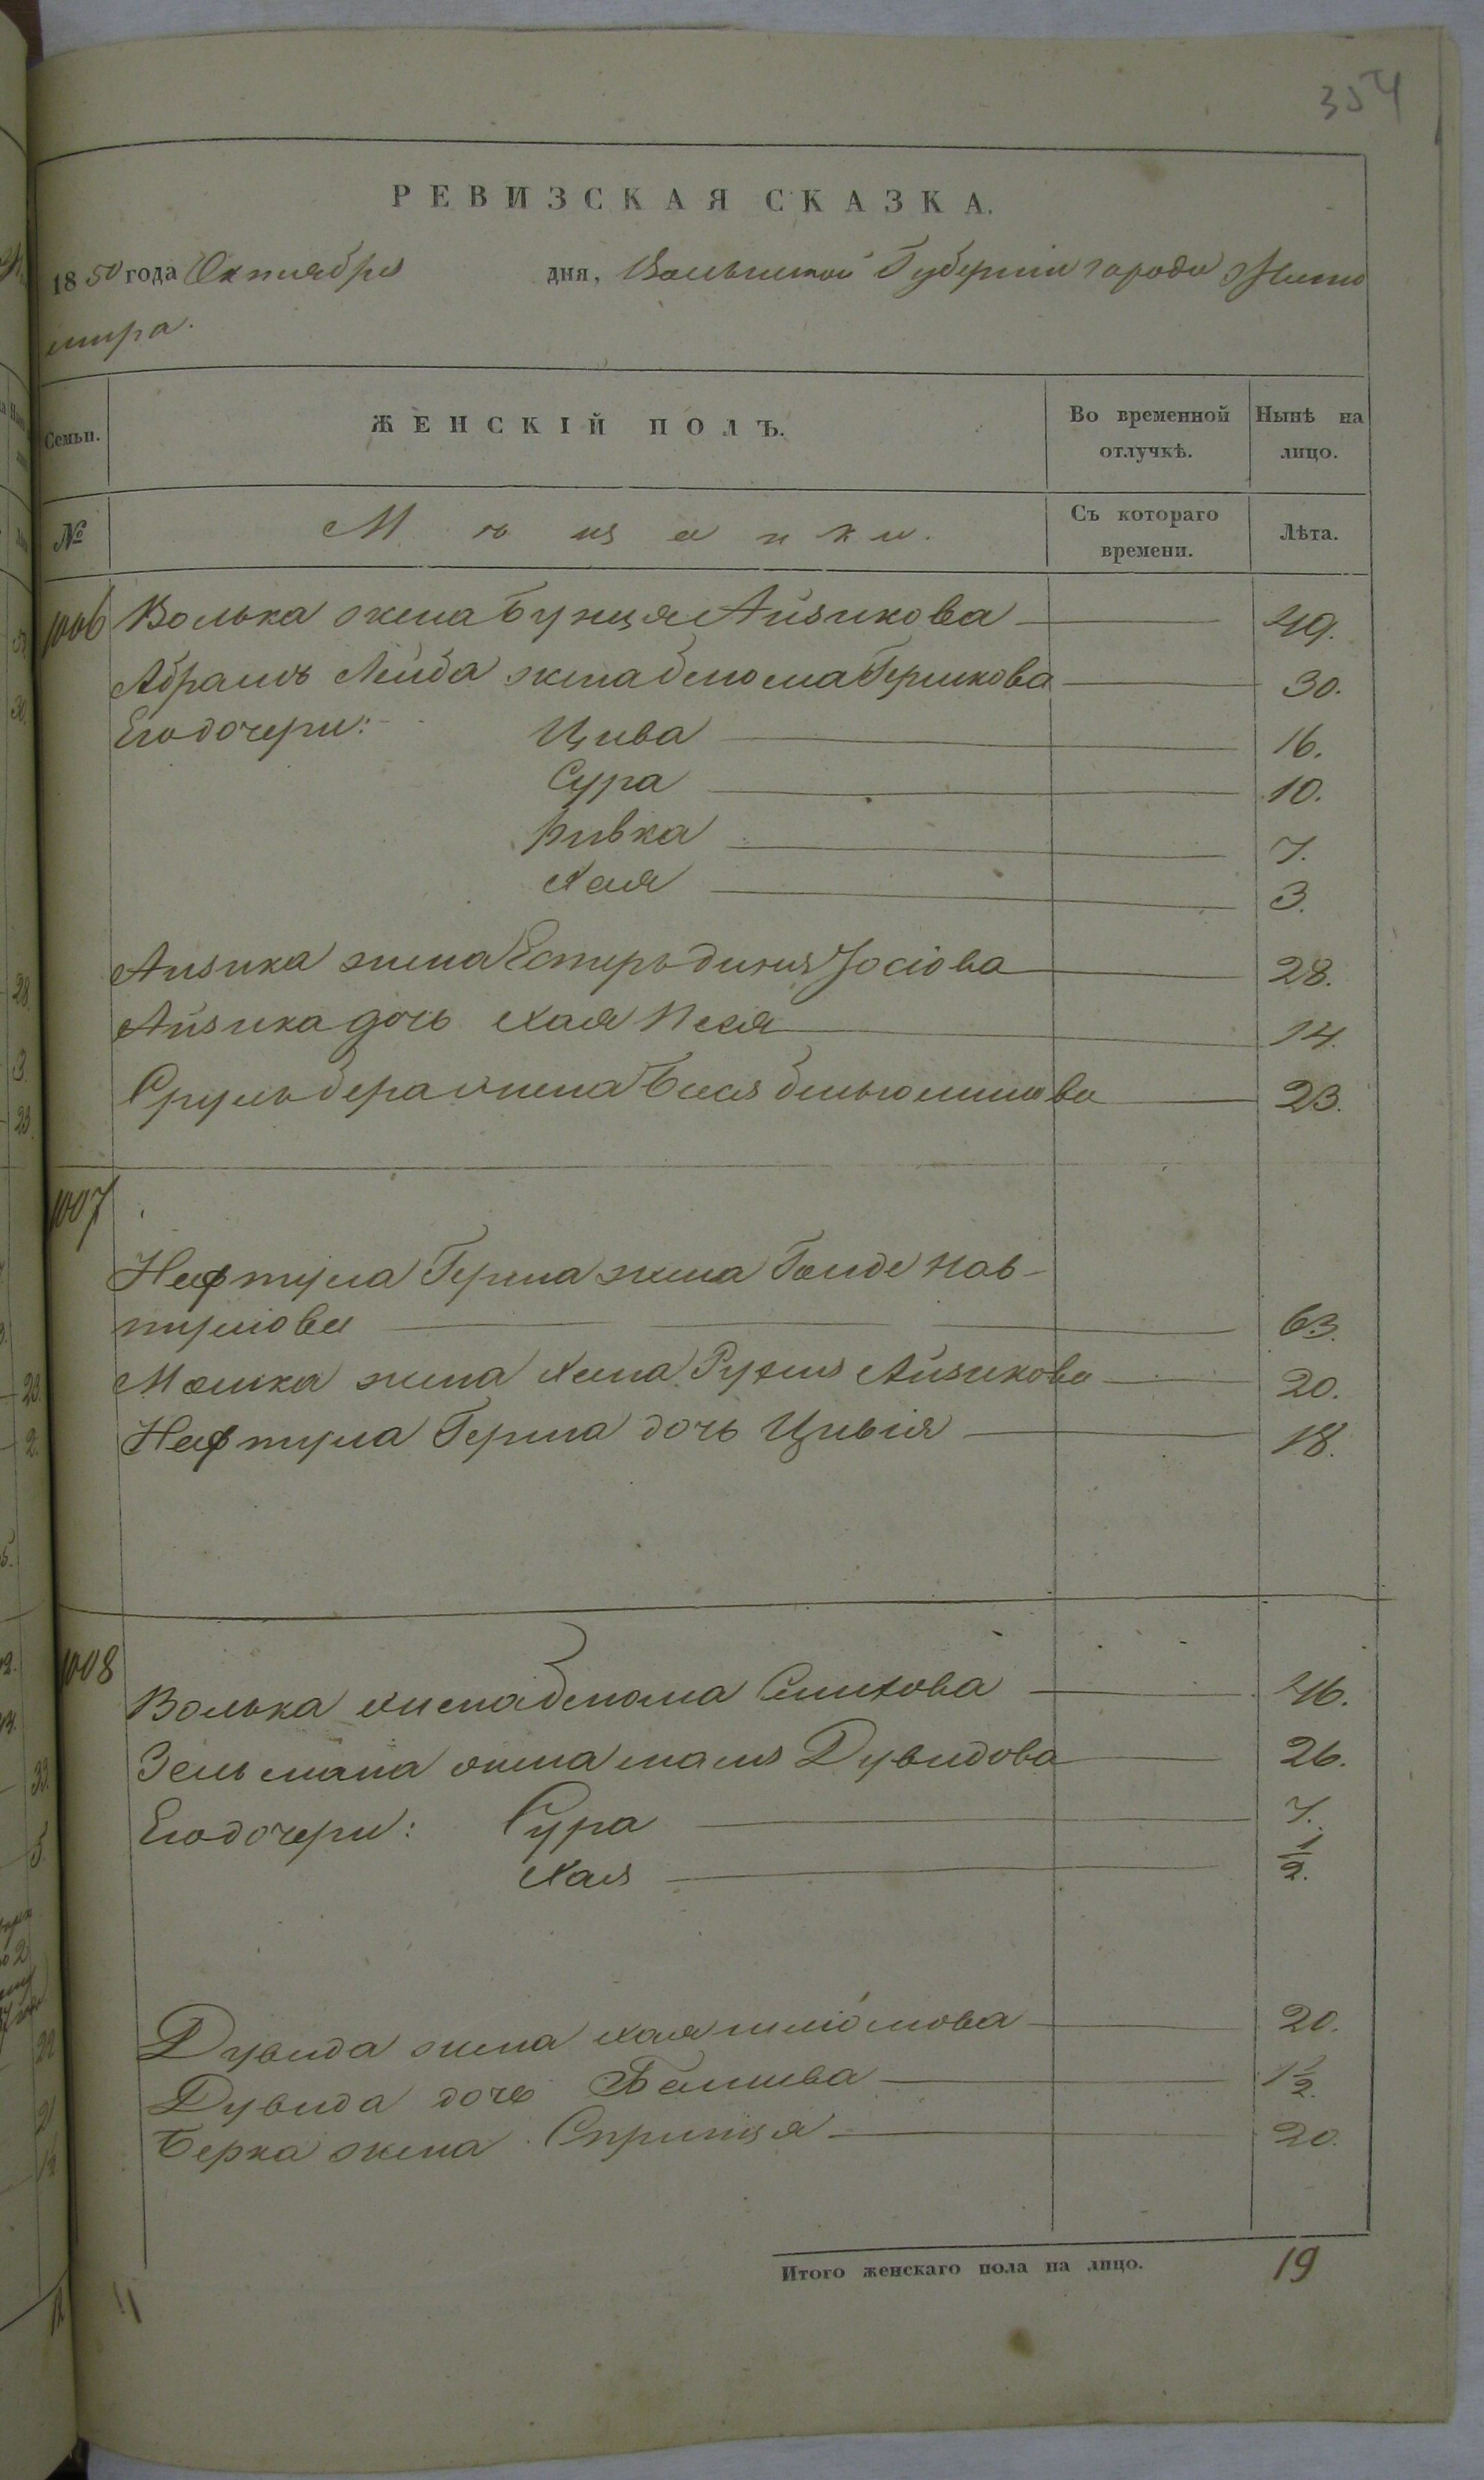 354
РЕВИЗСКАЯ СКАЗКА.
1850 года Октября дня, Волынской Губернiи города Жито
мира.
Семьи. ЖЕНСКIЙ ПОЛЪ. Во временной отлучкѣ. Нынѣ на лицо.
№ Мѣщанки. Съ котораго времени. Лѣта.
1006 Волька жена Бунця Айзикова 49.
Абрамъ Лейба жена Блюма Гершкова 30.
Его дочери: Цива 16.
Сура 10.
Ривка 7.
Хая 3.
Айзика жена ЕстеръIосiова 28.
Айзика дочь Хая Песя 14.
Сруль Бера жена Бася 23.
1007
Нафтула Герша жена Нав-
тулiова 63.
Мошка жена Айзикова 20.
Нафтула Герша дочь Цивiя 18.
1008
Волька жена Блюма 46.
Зельмана жена Дувидова 26.
Его дочери: Сура 7.
Хая 1/2.
Дувида жена Хая Шлiомова 20.
Дувида дочь 1 1/2.
Берка жена Спринця 20.
Итого женскаго пола на лицо. 19